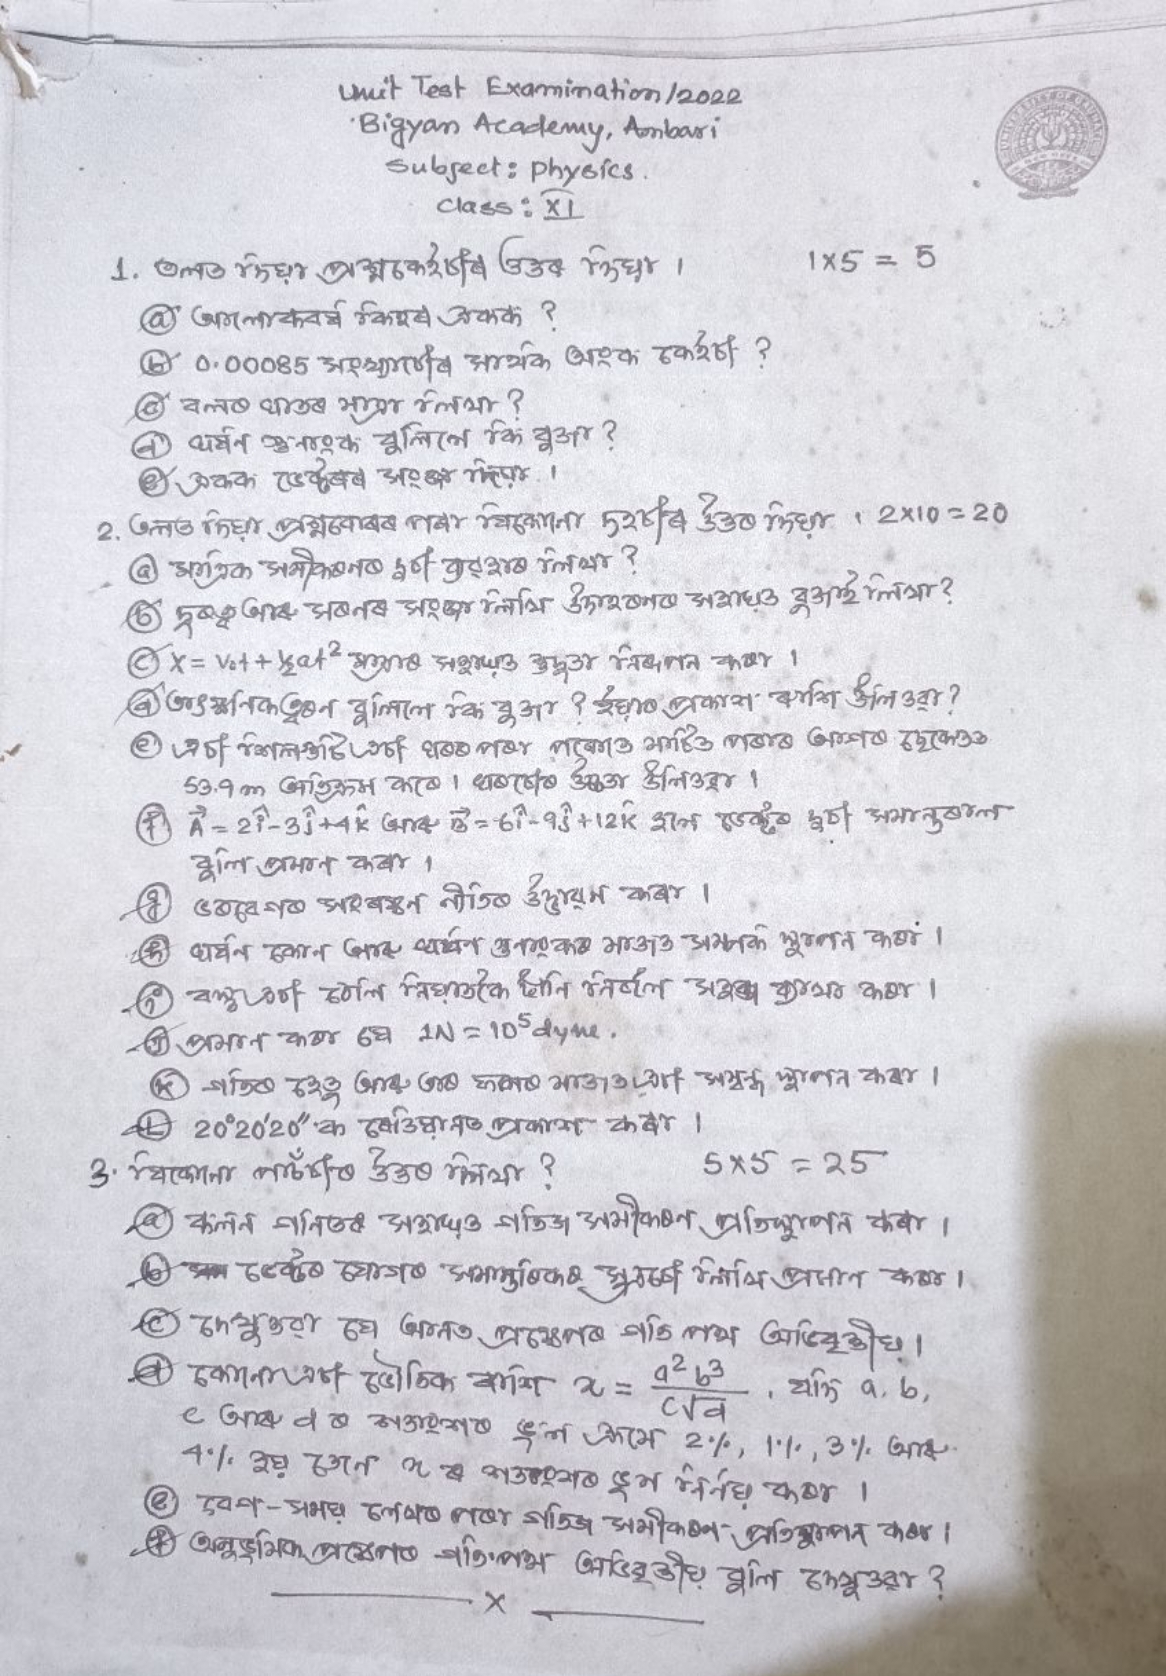 Unit Test Examination/2022
Bigyan Academy, Ambari
Subject: Physics.
Class: XI
1. তলত দিয়া প্ৰশ্নকেইটাৰ উত্তৰ দিয়া । 1×5 = 5
ⓐ আলোকবৰ্ষ কিহৰ একক ?
ⓑ 0.00085 সংখ্যাটোৰ সাৰ্থক অংক কেইটা ?
ⓒ বলৰ ঘাতৰ মাত্ৰা লিখা ?
ⓓ ঘৰ্ষন গুনাংক বুলিলে কি বুজা ?
ⓔ একক ভেক্টৰৰ সংজ্ঞা দিয়া ।
2. তলত দিয়া প্ৰশ্নবোৰৰ পৰা যিকোনো দহটাৰ উত্তৰ দিয়া । 2×10 = 20
ⓐ মাত্ৰিক সমীকৰনৰ দুটা ব্যৱহাৰ লিখা ?
ⓑ দূৰত্ব আৰু সৰনৰ সংজ্ঞা লিখি উদাহৰনৰ সহায়ত বুজাই লিখা ?
ⓒ x = v₀t + ½at² মাত্ৰাৰ সহায়ত শুদ্ধতা নিৰূপন কৰা ।
ⓓ তাৎক্ষনিক ত্বৰন বুলিলে কি বুজা ? ইয়াৰ প্ৰকাশ ৰাশি উলিওৱা ?
ⓔ এটা শিলগুটি এটা ঘৰৰ পৰা পকোতে মাটিত পৰাৰ আগৰ ছেকেণ্ডত
53.9 m অতিক্ৰম কৰে । ঘৰটোৰ উচ্চতা উলিওৱা ।
ⓕ A⃗ = 2î-3ĵ+4k̂ আৰু B⃗ = 6î-9ĵ+12k̂ হলে ভেক্টৰ দুটা সমান্তৰাল
বুলি প্ৰমান কৰা ।
ⓖ ভৰবেগৰ সংৰক্ষন নীতিৰ উদ্ভাৱন কৰা ।
ⓗ ঘৰ্ষন কোন আৰু ঘৰ্ষন গুনাংকৰ মাজত সম্পৰ্ক স্থাপন কৰা ।
ⓘ বস্তু এটা ঠেলি নিয়াতকৈ টানি নিবলৈ সহজ ব্যাখ্যা কৰা ।
ⓙ প্ৰমান কৰা যে 1N = 10⁵ dyne.
ⓚ গতিৰ হেতু আৰু তাৰ ফলৰ মাজত এটা সম্বন্ধ স্থাপন কৰা ।
ⓛ 20°20′20″ ক ৰেডিয়ানত প্ৰকাশ কৰা ।
3. যিকোনো পাচঁটাৰ উত্তৰ লিখা ? 5×5 = 25
ⓐ কলন গনিতৰ সহায়ত গতিজ সমীকৰণ প্ৰতিস্থাপন কৰা ।
ⓑ ভেক্টৰ যোগৰ সমান্তৰিকৰ সূত্ৰটো লিখি প্ৰমান কৰা ।
ⓒ দেখুওৱা যে আনত প্ৰক্ষেপৰ গতি পথ অধিবৃত্তীয় ।
ⓓ কোনো এটা ভৌতিক ৰাশি x = a²b³/c√d , যদি a, b,
c আৰু d ৰ শতাংশৰ ভুল ক্ৰমে 2%, 1%, 3% আৰু
4% হয় তেনে x ৰ শতাংশৰ ভুল নিৰ্নয় কৰা ।
ⓔ বেগ-সময় লেখৰ পৰা গতিজ সমীকৰন প্ৰতিস্থাপন কৰা ।
ⓕ অনুভূমিক প্ৰক্ষেপৰ গতিপথ অধিবৃত্তীয় বুলি দেখুওৱা ?
x